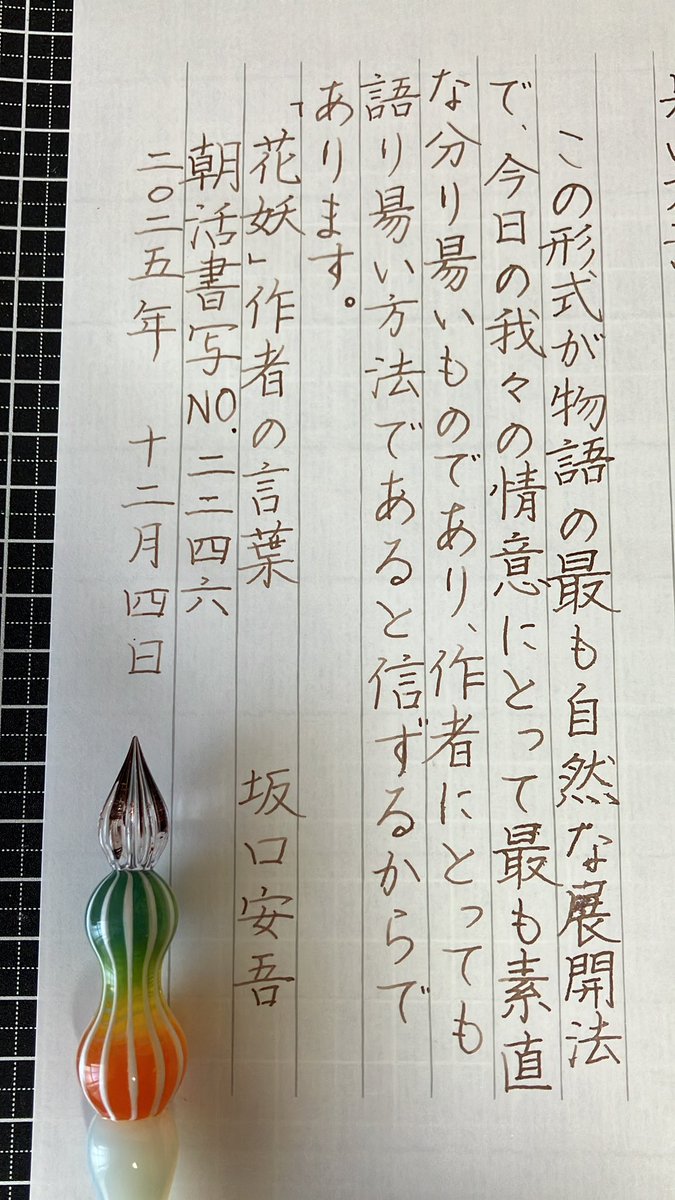 この形式が物語の最も自然な展開法
で、今日の我々の情意にとって最も素直
な分り易いものであり、作者にとっても
語り易い方法であると信ずるからで
あります。
「花妖」作者の言葉　坂口安吾
朝活書写NO.二二四六
二〇二五年　十二月四日